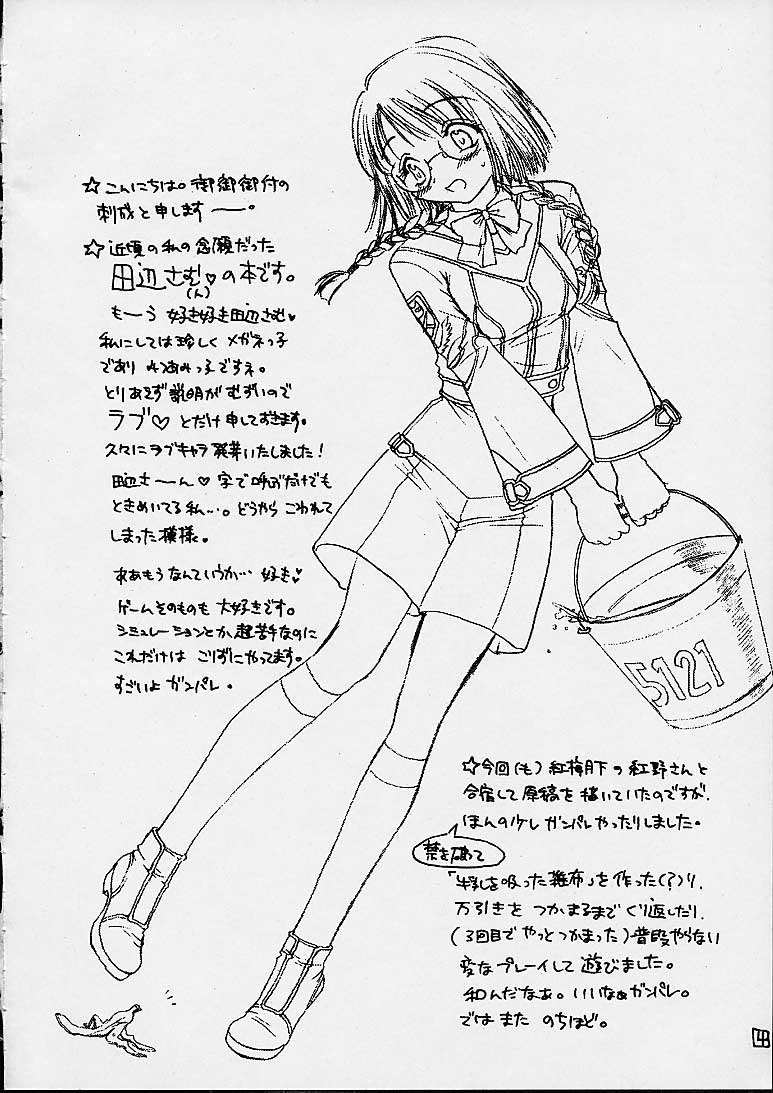 ☆こんにちは。御御御付の
刺成と申します——。
☆近頃の私の念願だった
田辺さむ♡の本です。
(ん)
も〜う 好き好き田辺さむ♡
私にしては珍しくメガネっ子
であり みつあみっ子ですネ。
とりあえず説明がむずいので
ラブ♡とだけ申しておきます。
久々にラブキャラ発芽いたしました!
田辺さ〜ん♡字で呼ぶだけでも
ときめいてる私…。どうやら こわれて
しまった模様。
ああもうなんていうか…好き♡
ゲームそのものも大好きです。
シミュレーションとか超苦手なのに
これだけは こりずにやってます。
すごいよガンパレ。
5121
☆今回(も)紅梅月下の紅野さんと
合宿して原稿を描いていたのですが、
ほんの少しガンパレやったりしました。
禁を破って
「牛乳を吸った雑布」を作った(?)り、
万引きを つかまるまで くり返したり、
(3回目でやっとつかまった)普段やらない
変なプレイして遊びました。
和んだなぁ。いいなぁガンパレ。
ではまた のちほど。
4